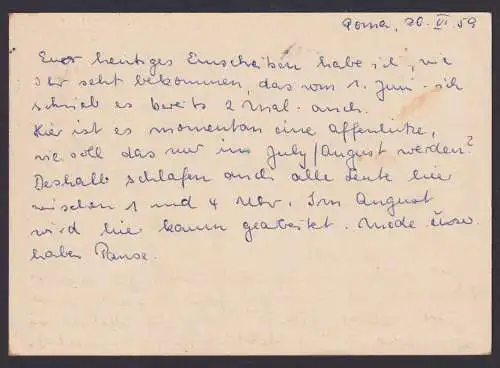 Roma, 20. VI. 59
Euer heutiges Einschreiben habe ich, wie
Ihr seht bekommen, das vom 1. Juni - ich
schrieb es bereits 2 mal - auch.
Hier ist es momentan eine Affenhitze,
wie soll das nur im July/August werden?
Deshalb schlafen auch alle Leute hier
zwischen 1 und 4 Uhr. Im August
wird hier kaum gearbeitet. Mode
haben Pause.